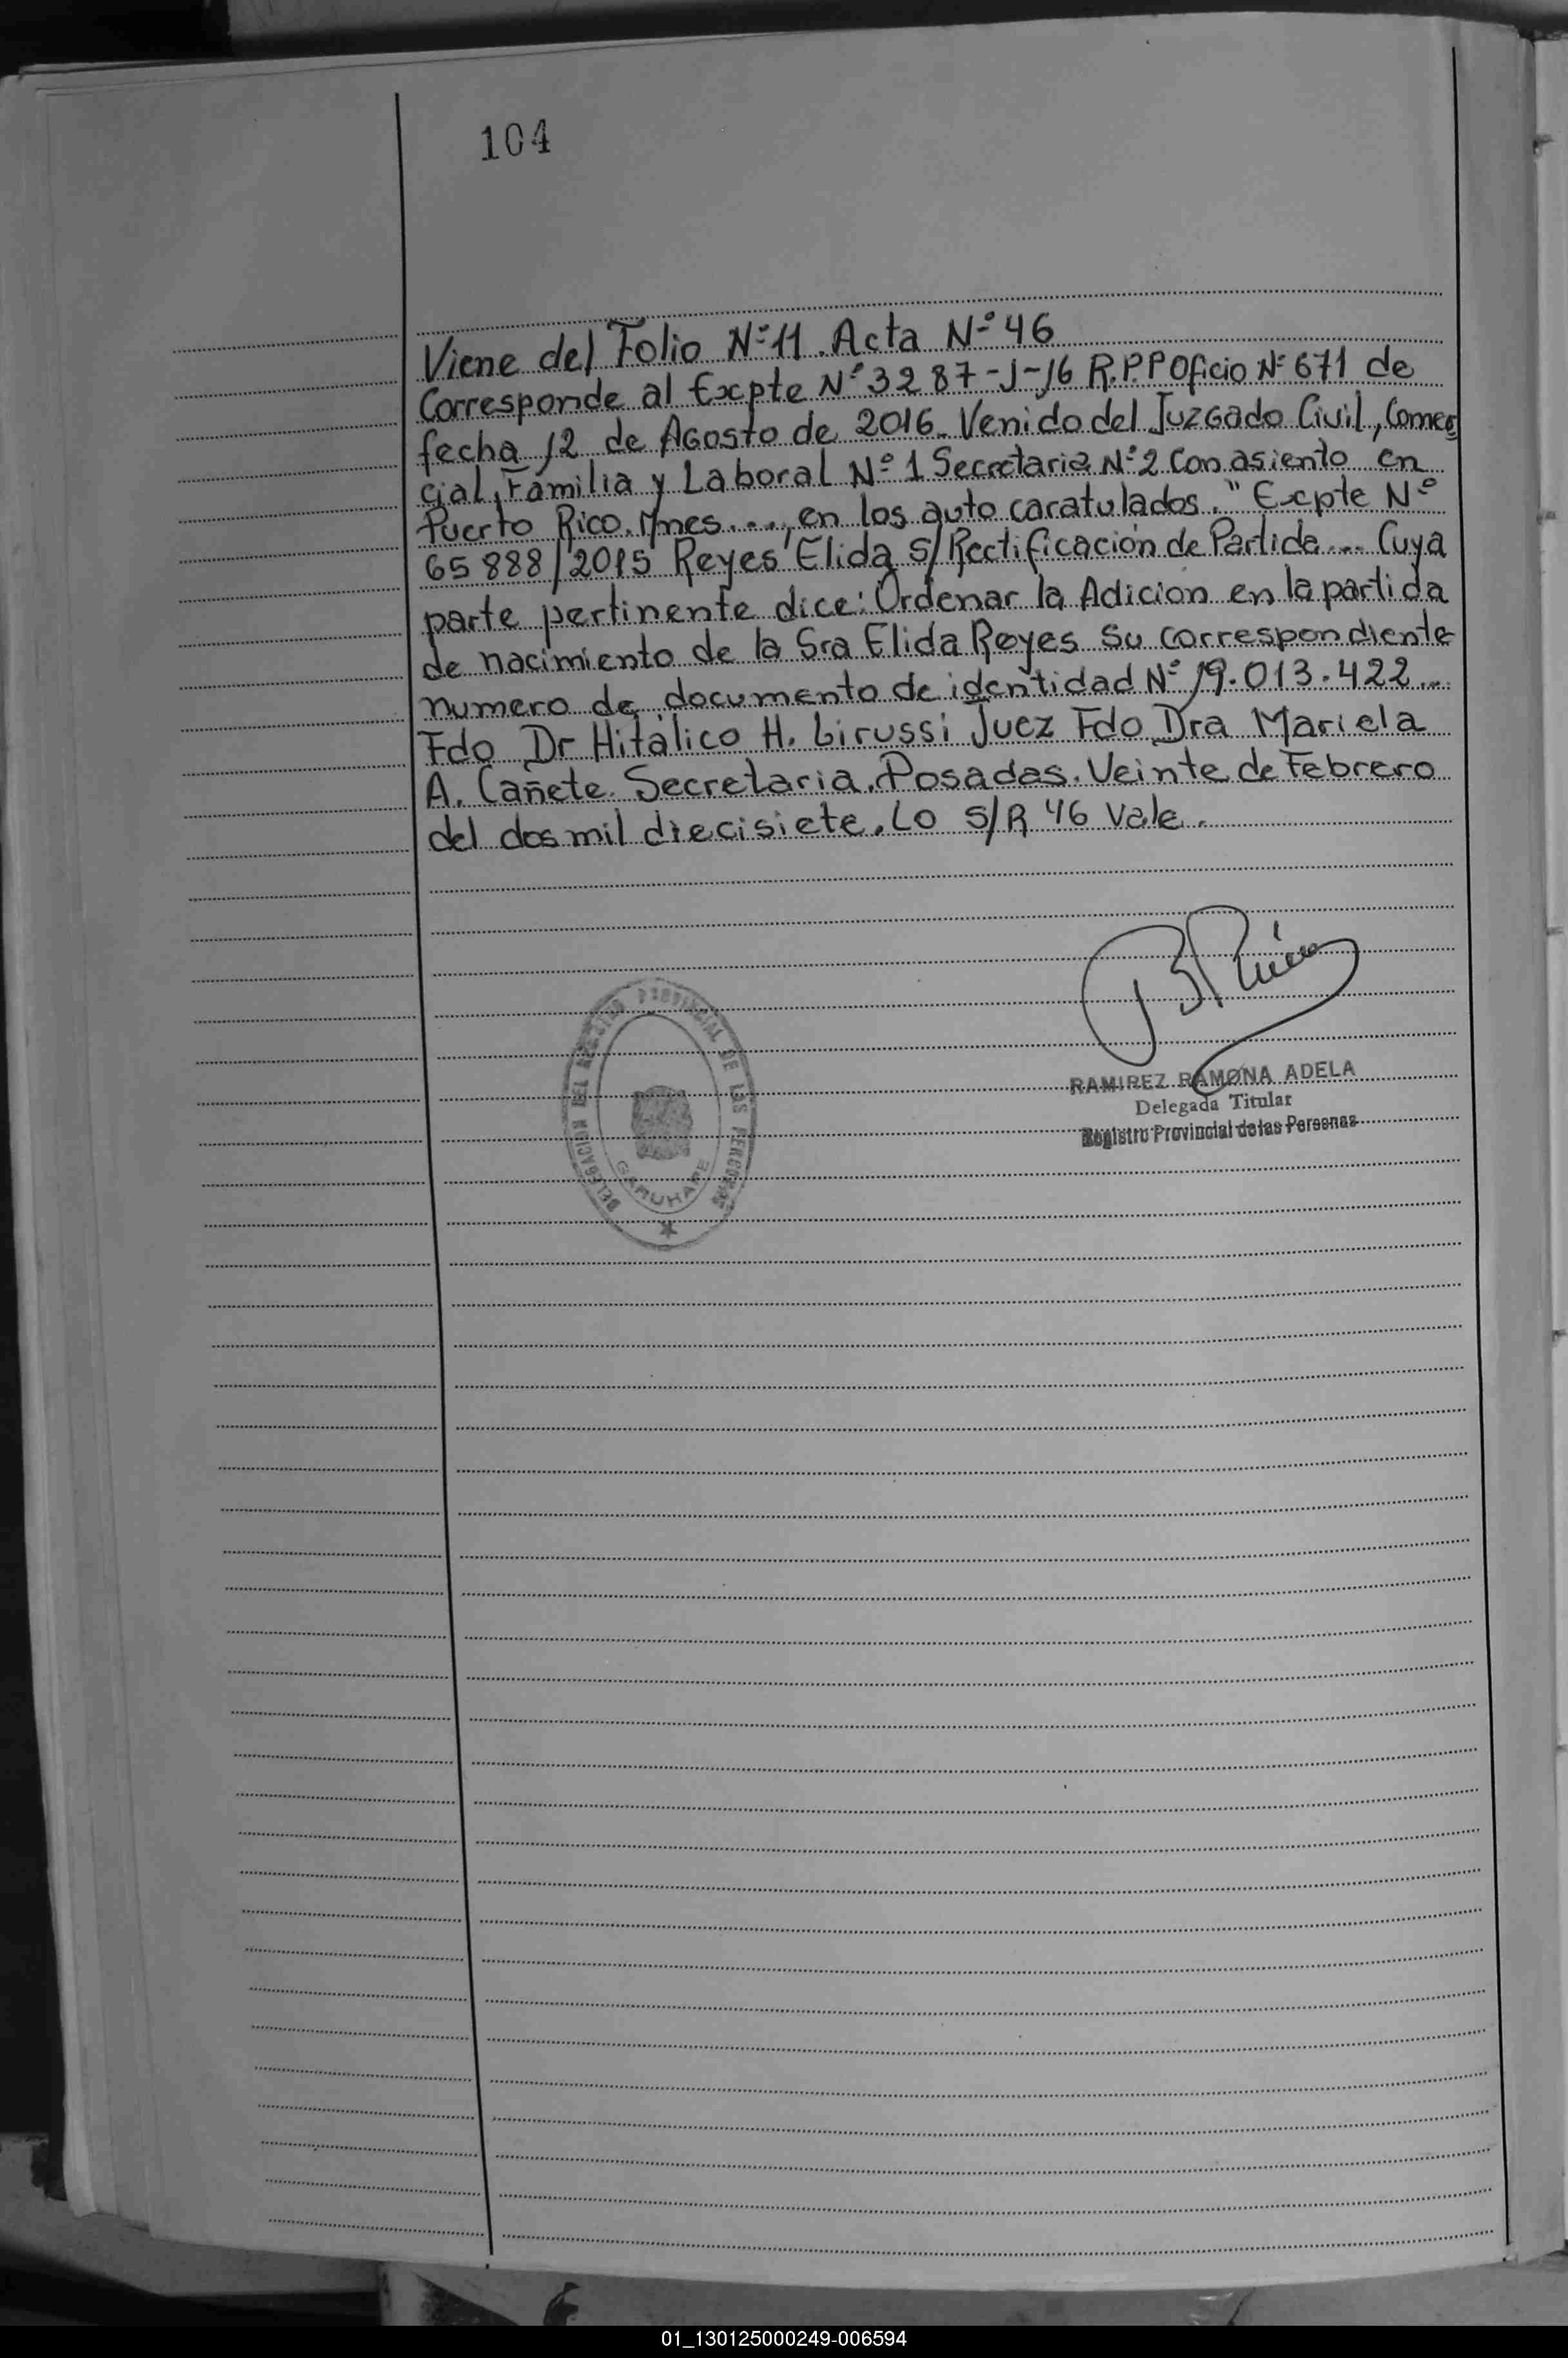 104
Viene del Folio Nº 11. Acta Nº 46
Corresponde al Excpte Nº 3287-J-16 R.P.P Oficio Nº 671 de
fecha 12 de Agosto de 2016. Venido del Juzgado Civil, Comer
cial, Familia y Laboral Nº 1 Secretaria Nº 2 Con asiento en
Puerto Rico. Mnes...., en los auto caratulados. " Excpte Nº
65888/2015 Reyes Elida S/ Rectificación de Partida... Cuya
parte pertinente dice: Ordenar la Adicion en la partida
de nacimiento de la Sra Elida Reyes Su correspondiente
numero de documento de identidad Nº 19.013.422...
Fdo Dr Hitalico H. Lirussi Juez Fdo Dra Mariela
A. Cañete. Secretaria. Posadas. Veinte de Febrero
del dos mil diecisiete. Lo S/R 46 Vale.
DELEGACION DEL REGISTRO PROVINCIAL DE LAS PERSONAS
GARUHAPE
RAMIREZ RAMONA ADELA
Delegada Titular
Registro Provincial de las Personas
01_130125000249-006594